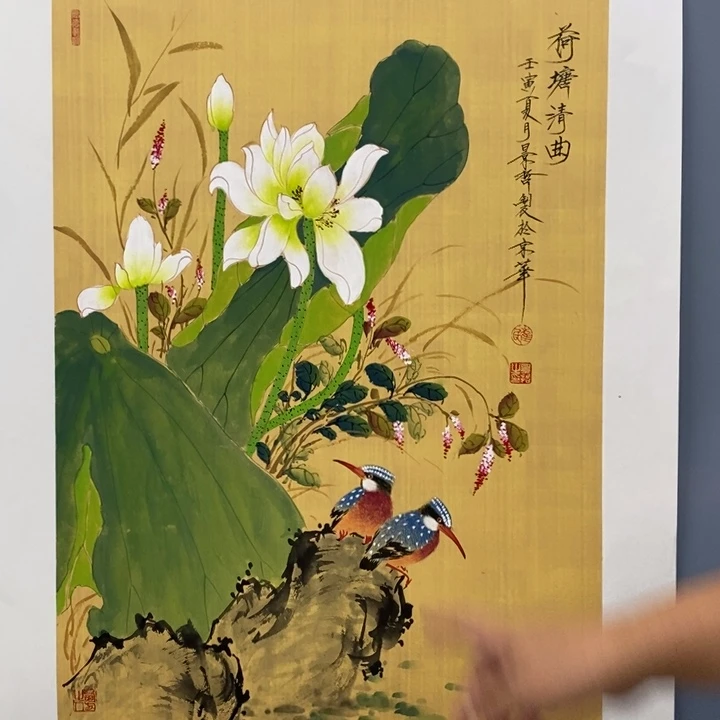 荷塘清曲
壬寅夏月景哲製於京華